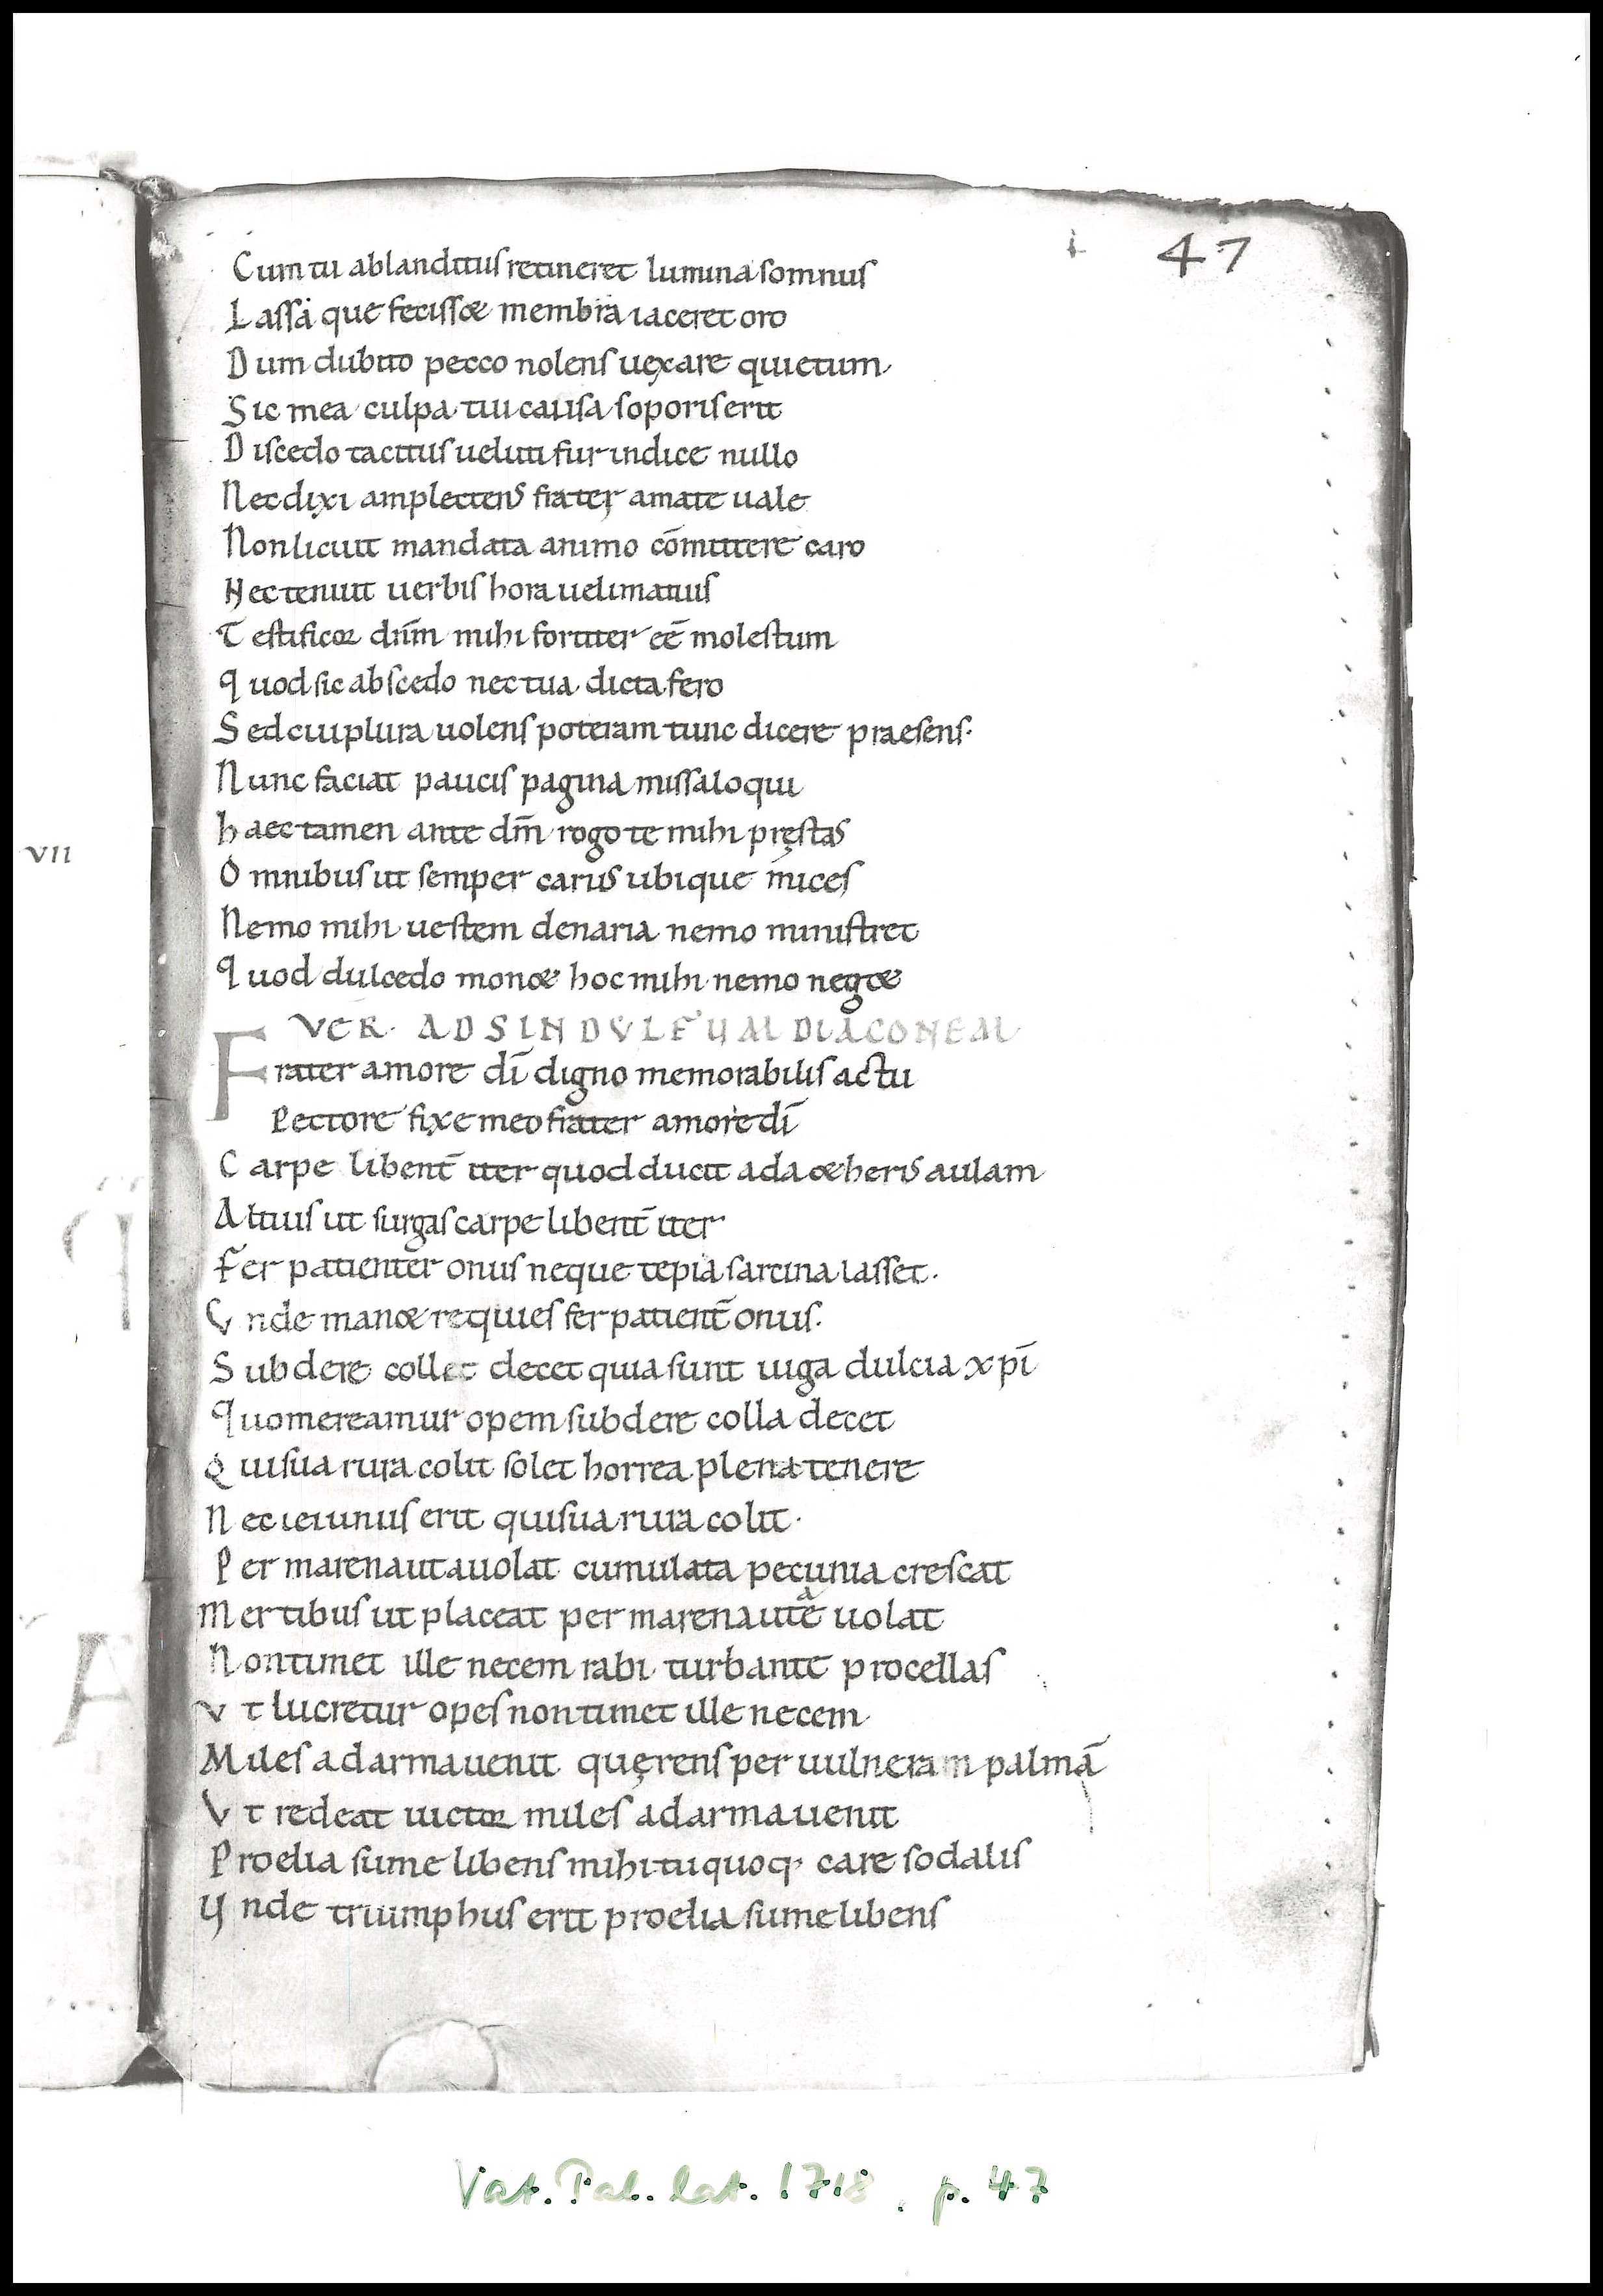 47
Cum tu ablanditus retineret lumina somnus
Lassaque fecissæ membra iaceret oro
Dum dubito pecco nolens uexare quietum
Sic mea culpa tui causa soporis erit
Discedo tacitus ueluti fur indice nullo
Nec dixi amplectens frater amate uale
Non licuit mandata animo cōmittere caro
Nec tenuit uerbis hora uel imatuis
Testificor dn̄m mihi fortiter eē molestum
quod sic abscedo nec tua dicta fero
Sed cui plura uolens poteram tunc dicere praesens·
Nunc faciat paucis pagina missa loqui
haec tamen ante dm̄ rogo te mihi pręstas
Omnibus ut semper carus ubique mices
Nemo mihi uestem denaria nemo ministret
quod dulcedo monæ hoc mihi nemo negæ
VER· AD SINDVLFUM DIACONEM
Frater amore dī digno memorabilis actu
Pectore fixe meo frater amore dī
Carpe libent̄ iter quod ducit ad aæheris aulam
Altius ut surgas carpe libent̄ iter
Fer patienter onus neque te pia sarcina lasset·
Vnde manæ requies fer patient̄ onus·
Subdere collec decet quia sunt iuga dulcia xpī
quo mereamur opem subdere colla decet
Qui sua rura colit solet horrea plena tenere
Nec ieiunus erit qui sua rura colit·
Per mare nauta uolat cumulata pecunia crescat
VII
Mertibus ut placeat per mare nautea uolat
Non timet ille necem rabi turbante procellas
Vt lucretur opes non timet ille necem
Miles ad arma uenit quęrens per uulneram palmā
Vt redeat uictor miles ad arma uenit
Proelia sume libens mihi tu quoq, care sodalis
Unde triumphus erit proelia sume libens
Vat. Pal. lat. 1718, p. 47